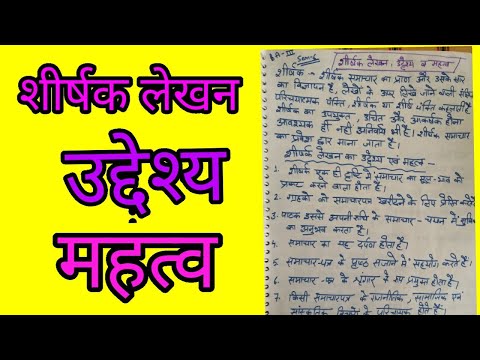 शीर्षक लेखन
उद्देश्य
महत्व
BA-III
शीर्षक लेखन: उद्देश्य व महत्व
शीर्षक - शीर्षक समाचार का प्राण और उसके सार
का विज्ञापन है, लेखों के ऊपर लिखे जाने वाली संक्षिप्त
परिचयात्मक पंक्ति, शीर्षक या शीर्ष पंक्ति कहलाती है
शीर्षक का उपयुक्त, उचित और आकर्षक होना
आवश्यक ही नहीं अनिवार्य भी है। शीर्षक समाचार
का प्रवेश द्वार माना जाता है।
शीर्षक लेखन का उद्देश्य एवं महत्व -
1. शीर्षक एक ही दृष्टि में समाचार का मूल-भाव को
प्रकट करने वाला होता है।
2. ग्राहकों को समाचारपत्र खरीदने के लिए प्रेरित करते
3. पाठक इससे अपनी रुचि के समाचार-चयन में सुविधा
का अनुभव करता है।
4. समाचार का यह दर्पण होता है।
5. समाचार-पत्र के पृष्ठ सजाने में सहयोग करते हैं।
6. समाचार-पत्र के श्रृंगार में प्रमुख होता है।
7. किसी समाचारपत्र के राजनीतिक, सामाजिक एवं
सांस्कृतिक के परिचायक होते हैं